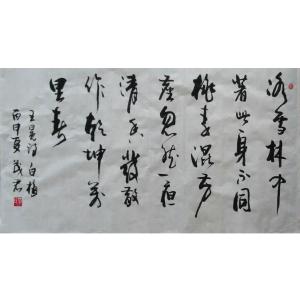 冰雪林中
著此身不同
桃李混芳
塵忽然一夜
清香發散
作乾坤萬
里春
王冕诗白梅
丙申夏茂君